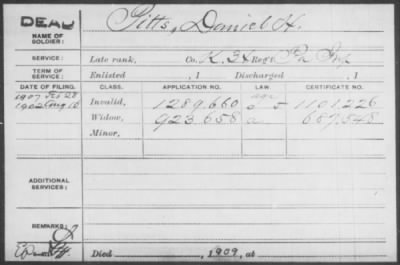 DEAD Pitts, Daniel H.
NAME OF SOLDIER:
SERVICE: Late rank, Co. K. 34 Reg't Pa Inf
TERM OF SERVICE: Enlisted , 1 Discharged , 1
DATE OF FILING. CLASS. APPLICATION NO. LAW. CERTIFICATE NO.
1907 Feb 28 Invalid, 1289.660 1101.226
1902 Aug 16 Widow, 923.658 687.548
Minor,
ADDITIONAL SERVICES:
REMARKS:
Died , 1909, at